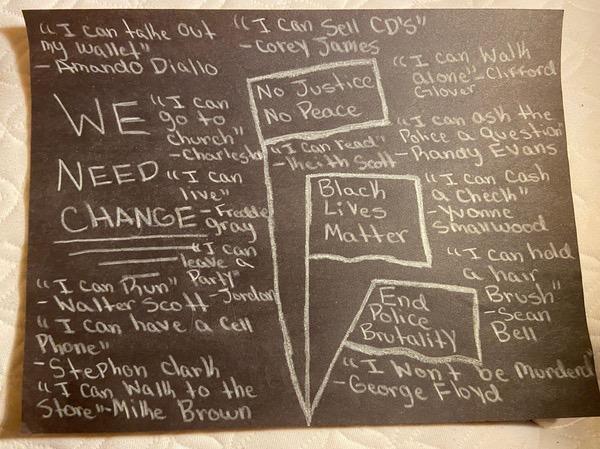 "I can take out
my wallet"
- Amando Diallo
"I can Sell CD'S"
- Corey James
"I can Walk
alone" - Clifford
Glover
WE
NEED
CHANGE
"I can
go to
church"
- Charleston
"I can
live"
- Freddie
gray
"I can
leave a
Party"
- Jordan
"I can Run"
- Walter Scott
"I can have a Cell
Phone"
- Stephon Clark
"I can Walk to the
Store" - Mike Brown
No Justice
No Peace
"I can read"
- Keith Scott
Black
Lives
Matter
End
Police
Brutality
"I can ask the
Police a Question"
- Randy Evans
"I can cash
a check"
- Yvonne
Smallwood
"I can hold
a hair
Brush"
- Sean
Bell
"I Won't be Murdered"
- George Floyd